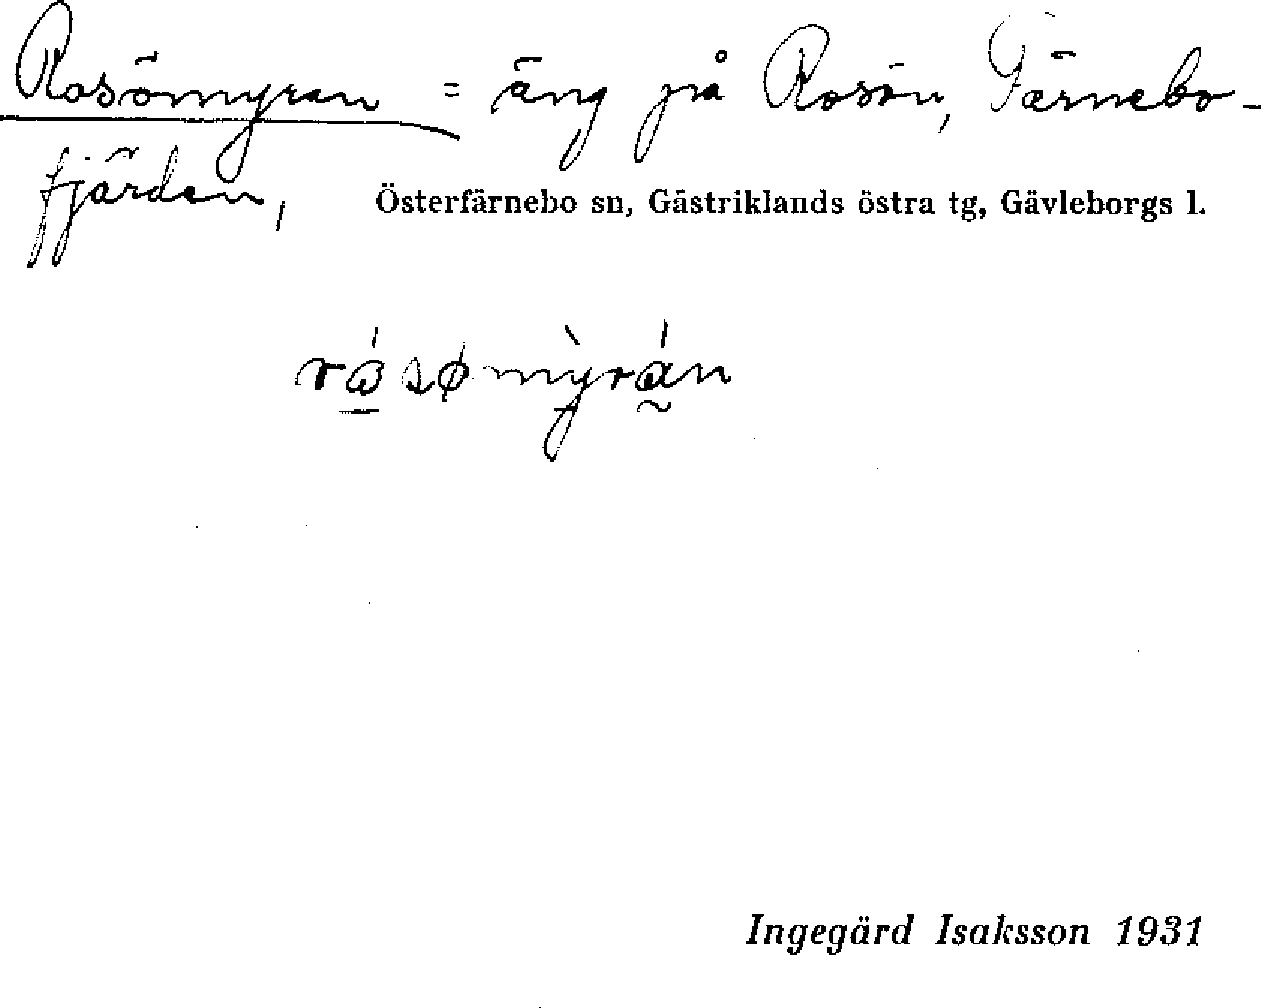 Rosömyran = äng på Rosön, Färnebo-
fjärden, Österfärnebo sn, Gästriklands östra tg, Gävleborgs l.
Ingegärd Isaksson 1931